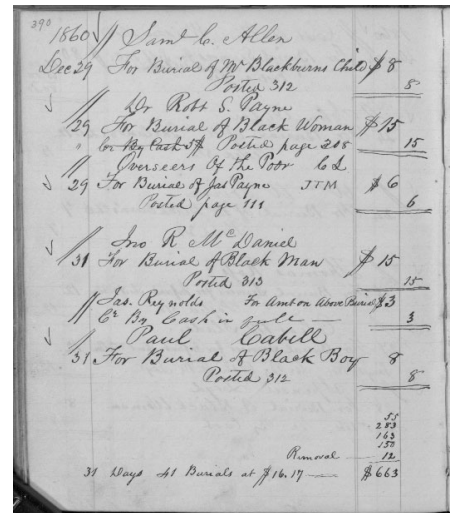 290
1860 // Saml C. Allen
Dec 29 For Burial of Mr Blackburns Child $8
Posted 312 8
// Dr Robt S. Payne
29 For Burial of Black Woman $15
" Cr By Cash 5$ Posted page 208 15
// Overseers Of the Poor C L
29 For Burial of Jas Payne JTM $6
Posted page 111 6
// Jno R McDaniel
31 For Burial of Black Man $15
Posted 313 15
// Jas. Reynolds For Amt on Above Burial $3
Cr By Cash in full — 3
// Paul Cabell
31 For Burial of Black Boy 8
Posted 312 8
55
283
163
150
Removal — 12
31 Days 41 Burials at $16.17 — $663